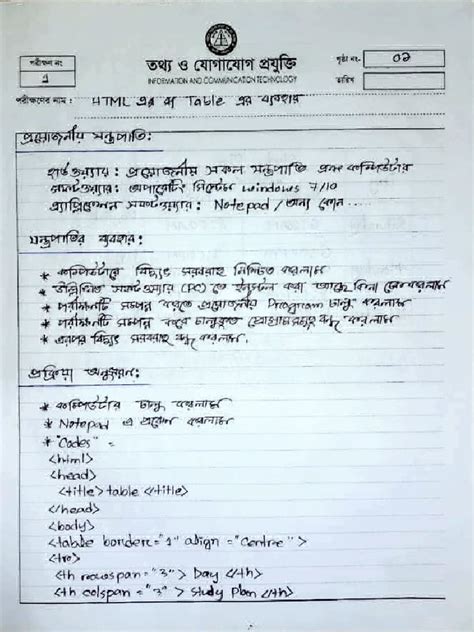 তথ্য ও যোগাযোগ প্রযুক্তি
INFORMATION AND COMMUNICATION TECHNOLOGY
পরীক্ষণ নং
1
পৃষ্ঠা নং-
তারিখ
পরীক্ষণের নাম : HTML এর Table এর ব্যবহার
প্রয়োজনীয় যন্ত্রপাতি:
হার্ডওয়্যার : প্রয়োজনীয় সকল যন্ত্রপাতি একটি কম্পিউটার
সফটওয়্যার: অপারেটিং সিস্টেম windows 7/10
এ্যাপ্লিকেশন সফটওয়্যার: Notepad / অন্য কোন ....
যন্ত্রপাতির ব্যবহার:
* কম্পিউটারে বিদ্যুৎ সরবরাহ নিশ্চিত করলাম
* উল্লিখিত সফটওয়্যার (PC) তে ইন্সটল করা আছে কিনা দেখে করলাম
* পরীক্ষণটি সম্পন্ন করতে প্রয়োজনীয় Program চালু করলাম
* পরীক্ষণটি সম্পন্ন করে চালুকৃত প্রোগ্রামসমূহ বন্ধ করলাম
* এরপর বিদ্যুৎ সরবরাহ বন্ধ করলাম.
প্রক্রিয়া অনুসরণ:
* কম্পিউটার চালু করলাম
* Notepad এ প্রবেশ করলাম
* "Codes" =
<html>
<head>
<title> table </title>
</head>
<body>
<table border="1" align ="Centre" >
<tr>
<th rowspan = "3" > Day </th>
<th colspan = "3" > Study Plan </th>